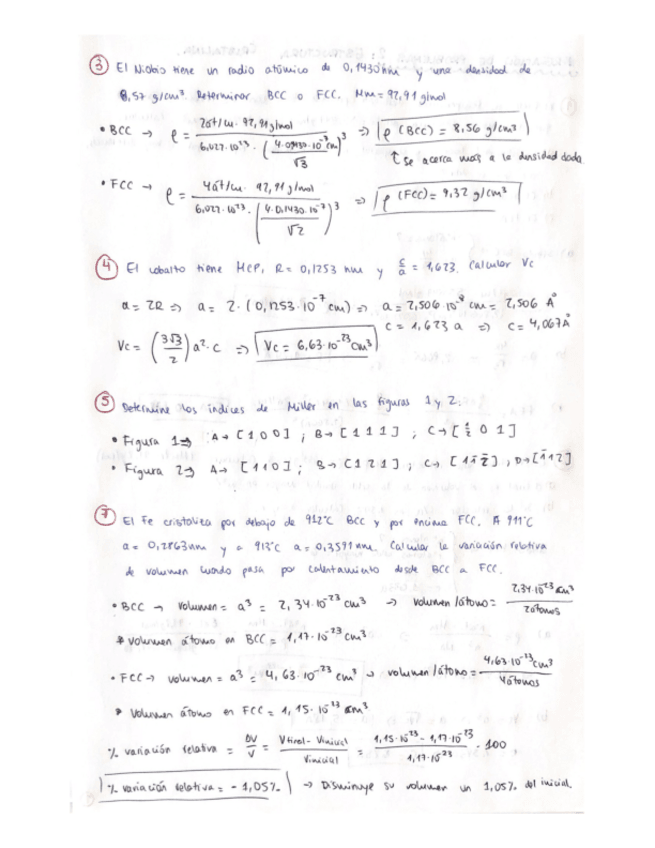 ③ El Niobio tiene un radio atómico de 0,1430 nm y una densidad de
8,57 g/cm³. Determinar BCC o FCC. Mm = 92,91 g/mol
• BCC → ρ = 2 át/cu · 92,91 g/mol / 6,022·10²³ · (4·0,1430·10⁻⁷ cm / √3)³ ⇒ ρ (BCC) = 8,56 g/cm³
↑ Se acerca más a la densidad dada
• FCC → ρ = 4 át/cu · 92,91 g/mol / 6,022·10²³ · (4·0,1430·10⁻⁷ / √2)³ ⇒ ρ (FCC) = 9,32 g/cm³
④ El cobalto tiene HCP, R = 0,1253 nm y c/a = 1,623. Calcular Vc
a = 2R ⇒ a = 2·(0,1253·10⁻⁷ cm) ⇒ a = 2,506 10⁻⁸ cm = 2,506 Å
c = 1,623 a ⇒ c = 4,067 Å
Vc = (3√3 / 2) a²·c ⇒ Vc = 6,63·10⁻²³ cm³
⑤ Determine los índices de Miller en las figuras 1 y 2:
• Figura 1 ⇒ A → [1 0 0] ; B → [1 1 1] ; C → [½ 0 1]
• Figura 2 ⇒ A → [1 1 0] ; B → [1 2 1] ; C → [1 1̄ 2̄] , D → [1̄ 1 2]
⑦ El Fe cristaliza por debajo de 912°C BCC y por encima FCC. A 911°C
a = 0,2863 nm y a 913°C a = 0,3591 nm. Calcular la variación relativa
de volumen cuando pasa por calentamiento desde BCC a FCC.
• BCC → volumen = a³ = 2,34·10⁻²³ cm³ → volumen/átomo = 2,34·10⁻²³ cm³ / 2 átomos
* volumen átomo en BCC = 1,17·10⁻²³ cm³
• FCC → volumen = a³ = 4,63·10⁻²³ cm³ → volumen/átomo = 4,63·10⁻²³ cm³ / 4 átomos
* Volumen átomo en FCC = 1,15·10⁻²³ cm³
% variación relativa = ΔV / V = Vfinal - Vinicial / Vinicial = 1,15·10⁻²³ - 1,17·10⁻²³ / 1,17·10⁻²³ · 100
% variación relativa = - 1,05% → Disminuye su volumen un 1,05% del inicial.